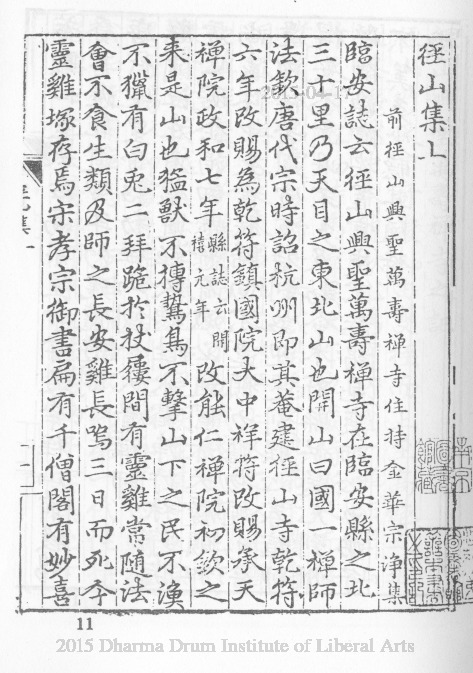 徑山集上
前徑山興聖萬壽禅寺住持金華宗浄集
臨安誌云徑山興聖萬壽禅寺在臨安縣之北
三十里乃天目之東北山也開山曰國一禅師
法欽唐代宗時詔杭州即其菴建徑山寺乾符
六年改賜為乾符鎮國院大中祥符改賜承天
禅院政和七年縣誌云開禧元年改能仁禅院初欽之
来是山也猛獸不搏鷙鳥不擊山下之民不漁
不獵有白兎二拜跪於杖屨間有靈雞常随法
會不食生類及師之長安雞長鳴三日而死今
靈雞塚存焉宗孝宗御書扁有千僧閣有妙喜
11
2015 Dharma Drum Institute of Liberal Arts